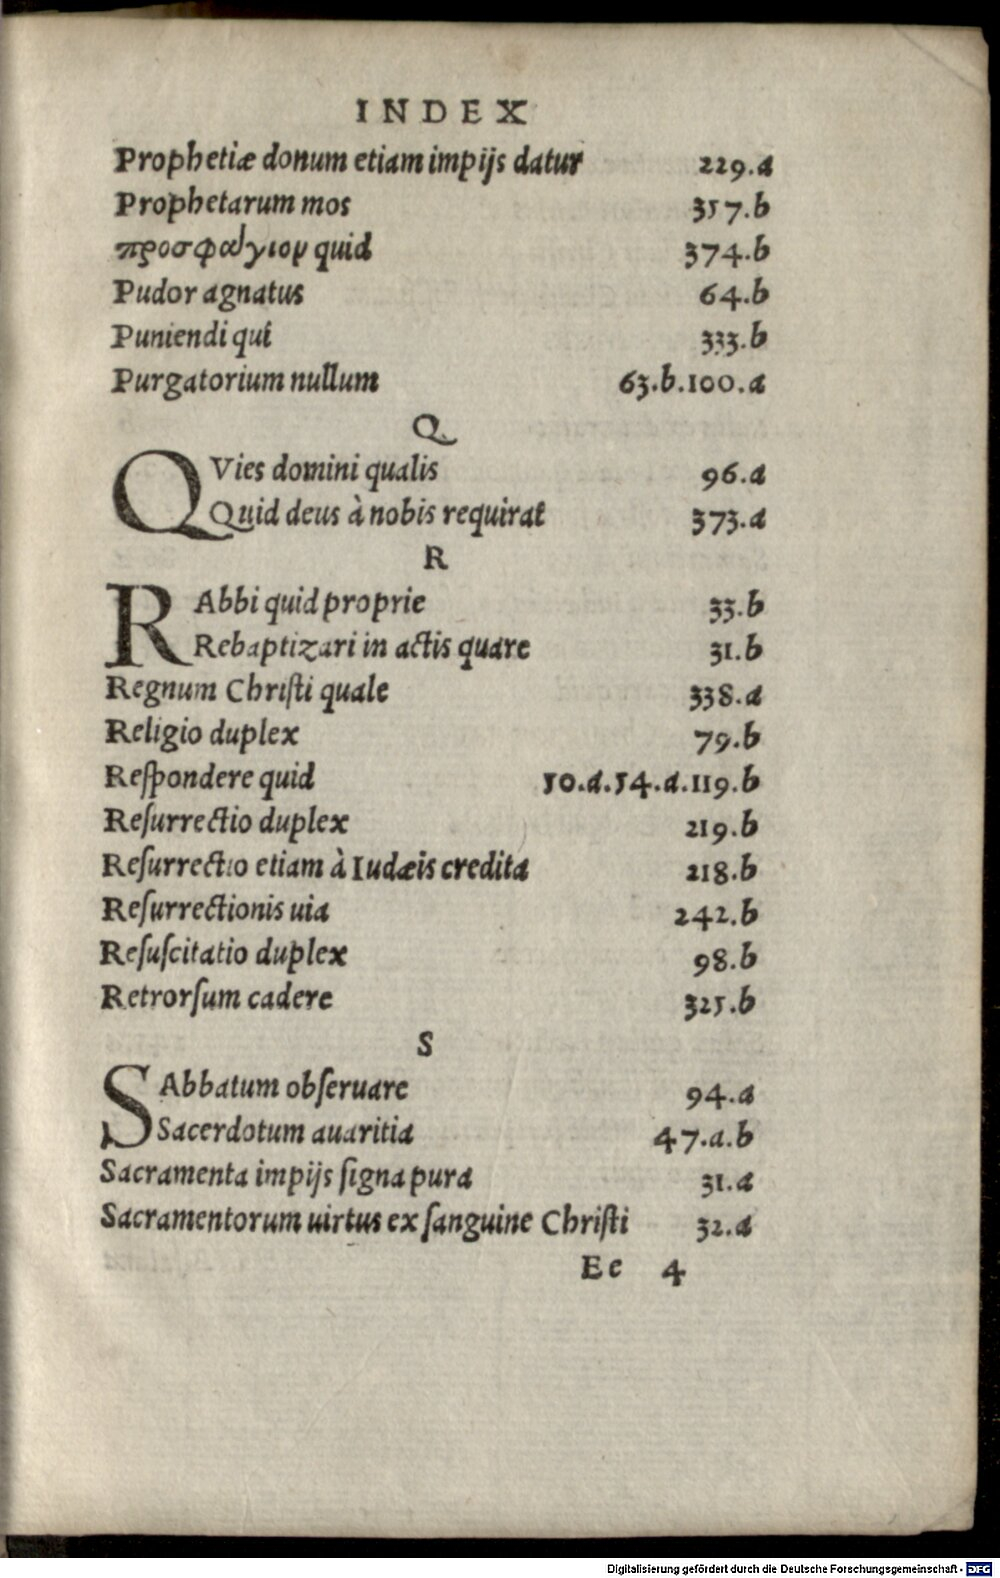 INDEX
Prophetiæ donum etiam impijs datur 229.a
Prophetarum mos 357.b
προσφάγιον quid 374.b
Pudor agnatus 64.b
Puniendi qui 333.b
Purgatorium nullum 63.b.100.a
Q
QVies domini qualis 96.a
Quid deus à nobis requirat 373.a
R
RAbbi quid proprie 33.b
Rebaptizari in actis quare 31.b
Regnum Chriſti quale 338.a
Religio duplex 79.b
Reſpondere quid 50.a.54.a.119.b
Reſurrectio duplex 219.b
Reſurrectio etiam à Iudæis credita 218.b
Reſurrectionis uia 242.b
Reſuſcitatio duplex 98.b
Retrorſum cadere 325.b
S
SAbbatum obſeruare 94.a
Sacerdotum auaritia 47.a.b
Sacramenta impijs ſigna pura 31.a
Sacramentorum uirtus ex ſanguine Chriſti 32.a
Ee 4
Digitalisierung gefördert durch die Deutsche Forschungsgemeinschaft - DFG